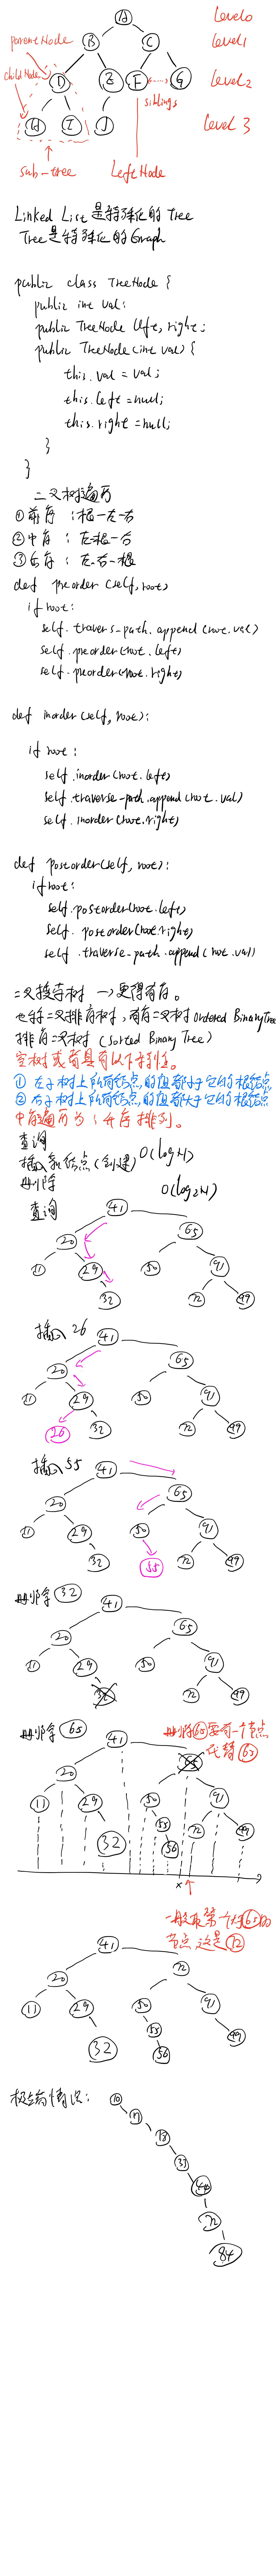 A Level0
parentNode B C Level1
childNode D E F G Level2
siblings
H I J Level 3
sub-tree Left Node
Linked List 是特殊化的 Tree
Tree 是特殊化的 Graph
public class TreeNode {
public int val;
public TreeNode left, right;
public TreeNode (int val) {
this.val = val;
this.left = null;
this.right = null;
}
}
二叉树遍历
① 前序 : 根-左-右
② 中序 : 左-根-右
③ 后序 : 左-右-根
def preorder (self, root)
if root:
self.traverse-path.append(root.val)
self.preorder(root.left)
self.preorder(root.right)
def inorder(self, root):
if root:
self.inorder(root.left)
self.traverse-path.append(root.val)
self.inorder(root.right)
def postorder(self, root):
if root:
self.postorder(root.left)
self.postorder(root.right)
self.traverse-path.append(root.val)
二叉搜索树 → 更得有序。
也称二叉排序树,有序二叉树 ordered Binary Tree
排序二叉树 (Sorted Binary Tree)
空树或者具有以下特性。
① 左子树上所有结点的值都小于它的根结点
② 右子树上所有结点的值都大于它的根结点
中序遍历为:升序排列。
查询
插入新结点(创建) O(log H)
删除 O(log2H)
查询 41
20 65
11 29 50 91
32 72 99
插入 26 41
20 65
11 29 50 91
26 32 72 99
插入 55 41
20 65
11 29 50 91
32 55 72 99
删除 32 41
20 65
11 29 50 91
32 72 99
删除 65 41 65 删除65要有一个节点
代替 65
20
11 29 50 91
32 55 72 99
56
x
一般取第一个大于65的
节点 这是 72
41
20 72
11 29 50 91
32 55 99
56
极端情况: 10
17
18
33
44
72
84